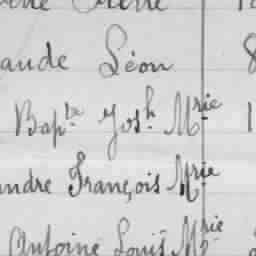 aude Léon 8
Bapte Josh Mrie 1
andre François Mrie
Antoine Louis Mrie